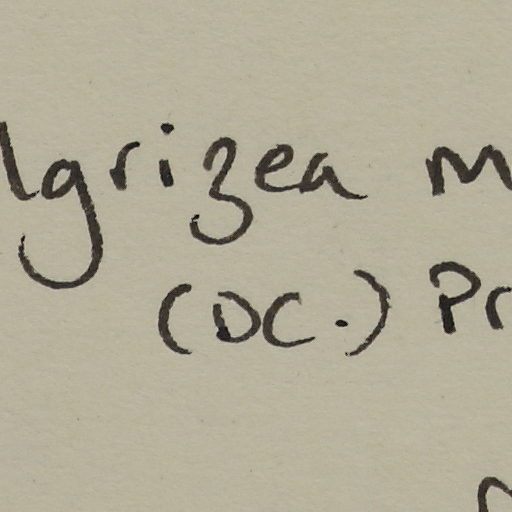 lgrizea m
(DC.) Pr